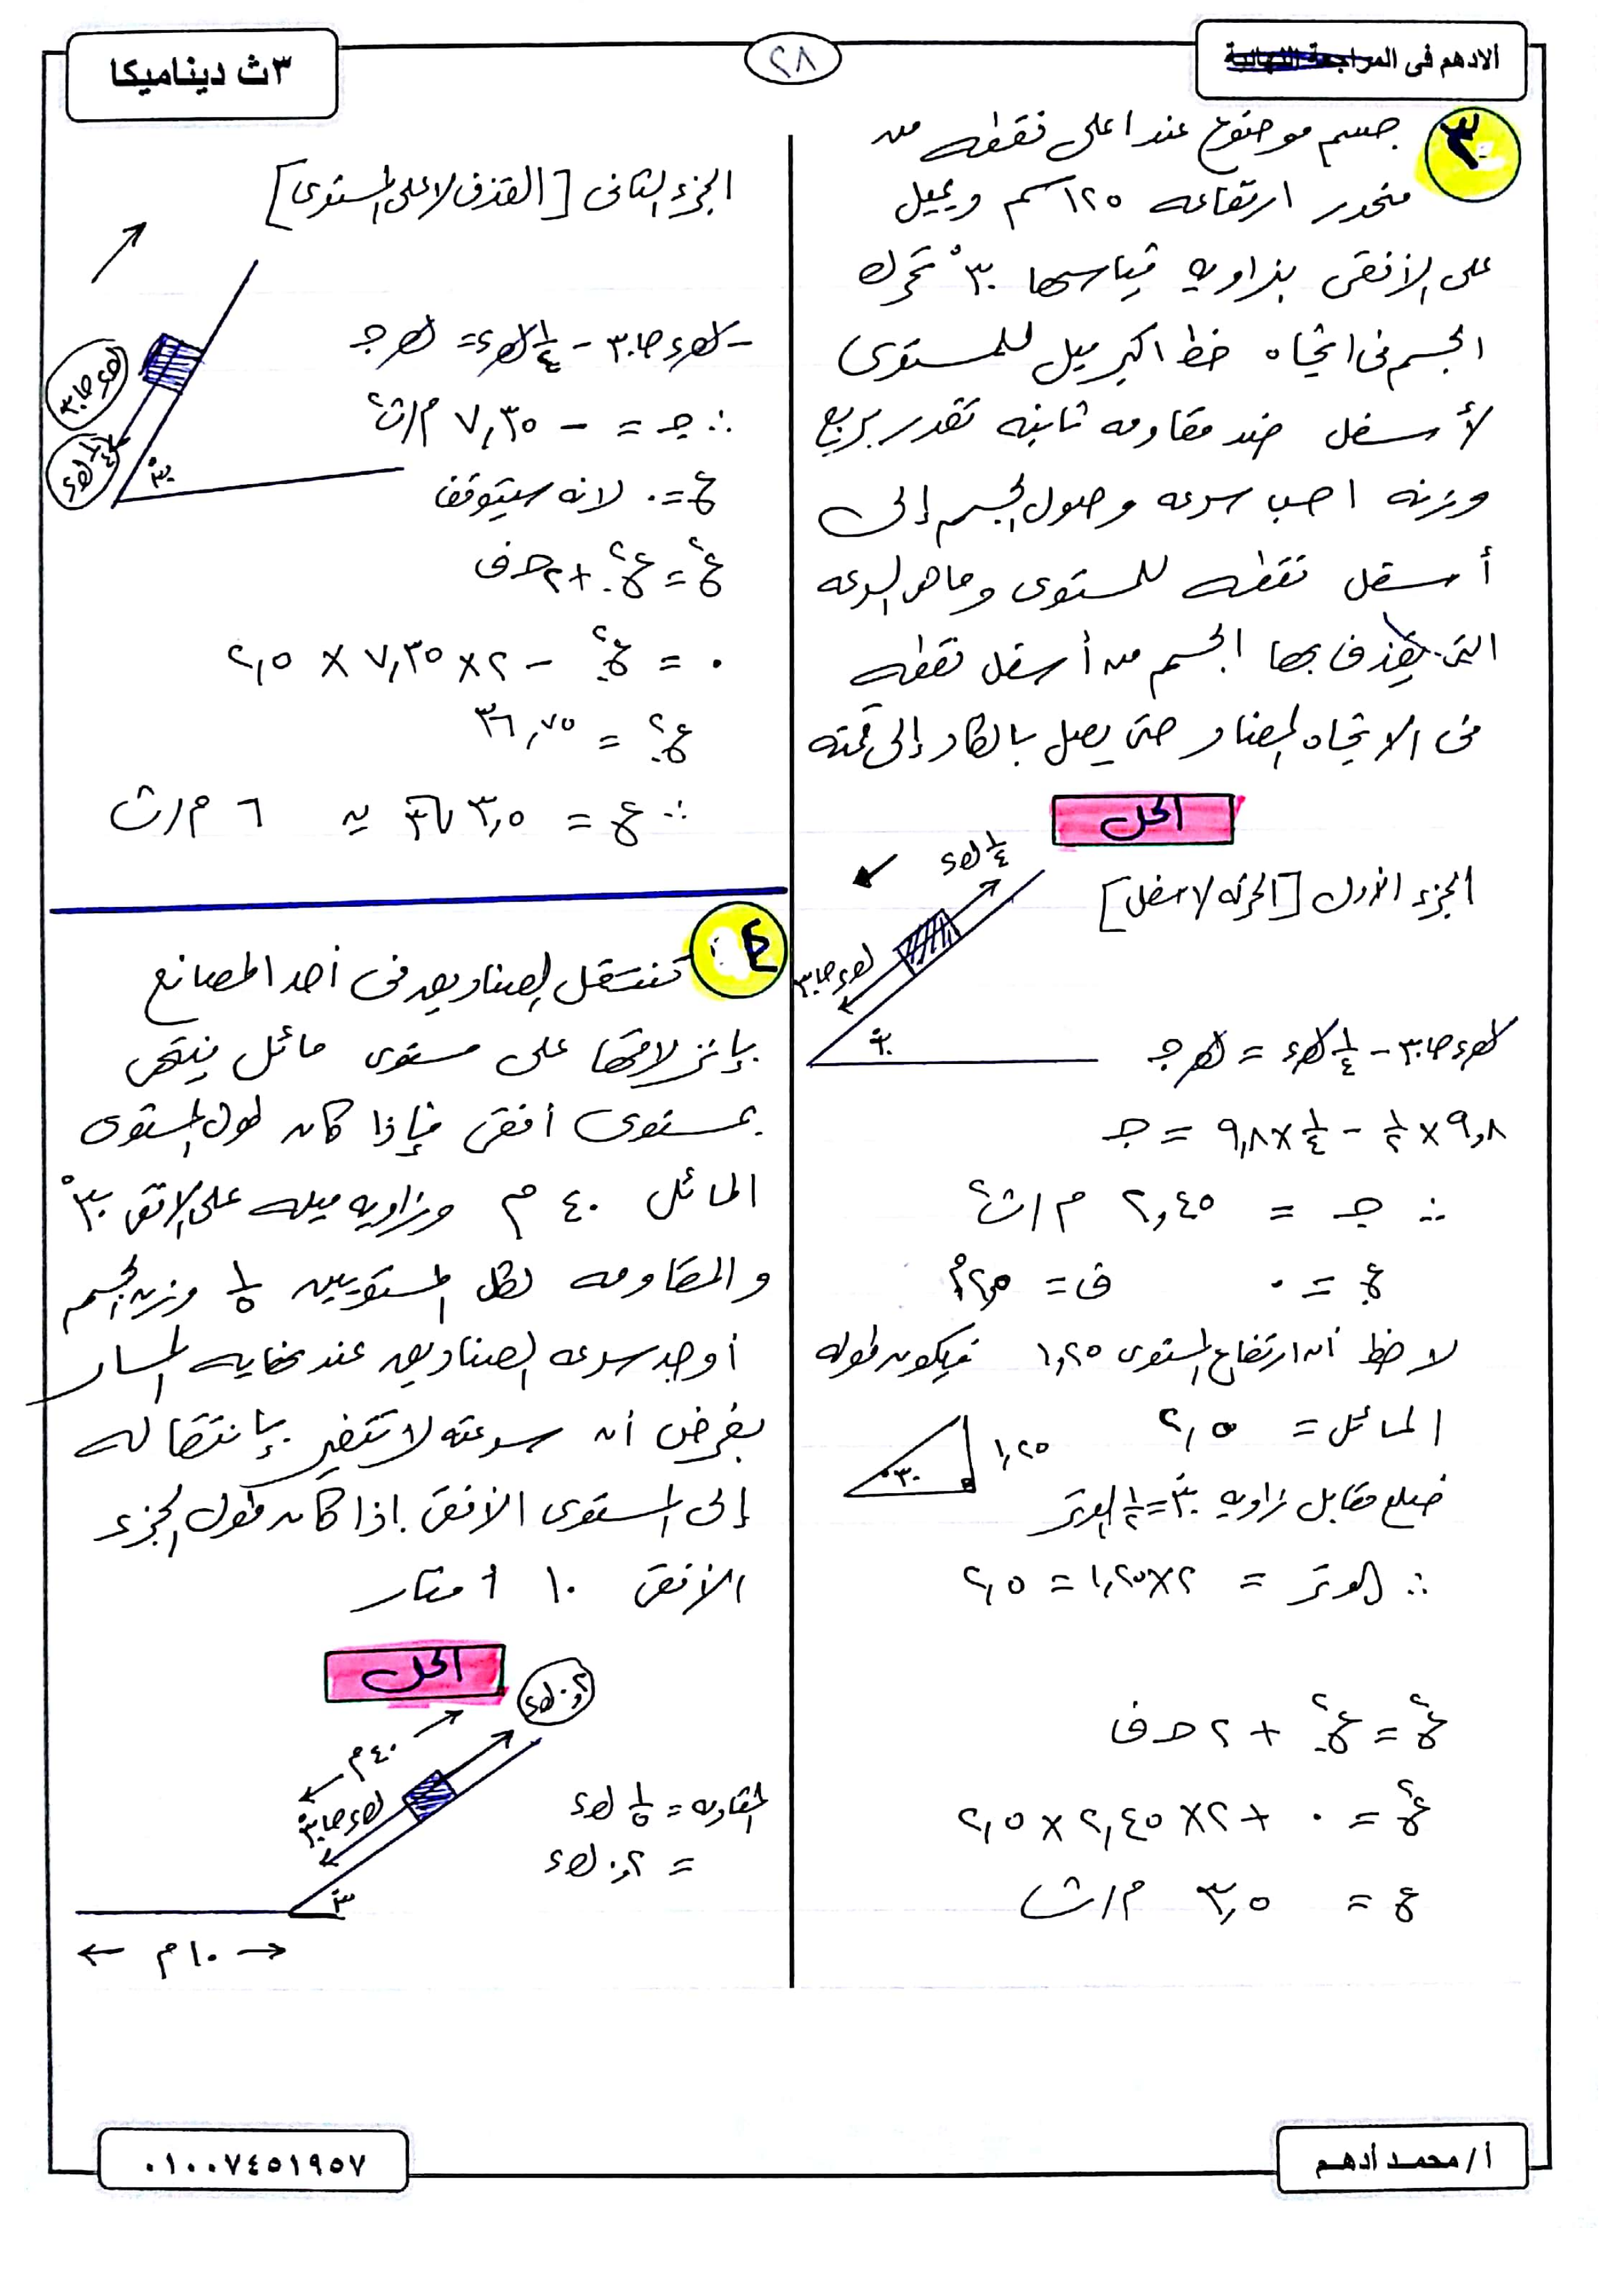 الادهم فى المراجعة النهائية
٢٨
٣ث ديناميكا
٣
جسم موضوع عند اعلى نقطه من
منحدر ارتفاعه ١٢٥ سم ويميل
على الأفقى بزاويه قياسها ٣٠° تحرك
الجسم فى اتجاه خط اكبر ميل للمستوى
لأسفل ضد مقاومه ثابته تقدر بربع
وزنه احسب سرعه وصول الجسم إلى
أسفل نقطه للمستوى وما هى السرعه
التى يقذف بها الجسم من أسفل نقطه
فى الاتجاه المضاد حتى يصل بالكاد إلى قمته
الحل
الجزء الاول [الحركه لاسفل]
١/٤ ك ء
ك ء حا٣٠
٣٠°
ك ء حا٣٠ - ١/٤ ك ء = ك جـ
٩,٨ × ١/٢ - ١/٤ × ٩,٨ = جـ
∴ جـ = ٢,٤٥ م/ث٢
ع. = ٠ ف = ٢,٥ م
لاحظ أن ارتفاع المستوى ١,٢٥ فيكون طوله
المائل = ٢,٥
١,٢٥
٣٠°
ضلع مقابل زاويه ٣٠° = ١/٢ الوتر
∴ الوتر = ٢ × ١,٢٥ = ٢,٥
ع٢ = ع.٢ + ٢ حـ ف
ع٢ = ٠ + ٢ × ٢,٤٥ × ٢,٥
ع = ٣,٥ م/ث
الجزء الثانى [القذف لاعلى المستوى]
ك ء حا٣٠
١/٤ ك ء
٣٠°
- ك ء حا٣٠ - ١/٤ ك ء = ك جـ
∴ جـ = - ٧,٣٥ م/ث٢
ع = ٠ لانه سيتوقف
ع٢ = ع.٢ + ٢ حـ ف
٠ = ع.٢ - ٢ × ٧,٣٥ × ٢,٥
ع.٢ = ٣٦,٧٥
∴ ع. = ٣,٥ √٣ ≃ ٦ م/ث
٤
تنتقل الصناديق فى أحد المصانع
بإنزلاقها على مستوى مائل ينتهى
بمستوى أفقى فإذا كان طول المستوى
المائل ٤٠ م وزاويه ميله على الافقى ٣٠°
والمقاومه لكل المستويين ١/٥ وزن الجسم
أوجد سرعه الصناديق عند نهايه المسار
بفرض أن سرعته لا تتغير بإنتقاله
إلى المستوى الأفقى. اذا كان طول الجزء
الأفقى ١٠ أمتار
الحل
٠,٢ ك ء
٤٠ م
ك ء حا٣٠
٣٠°
١٠ م
المقاومه = ١/٥ ك ء
= ٠,٢ ك ء
أ/ محمد أدهم
٠١٠٠٧٤٥١٩٥٧